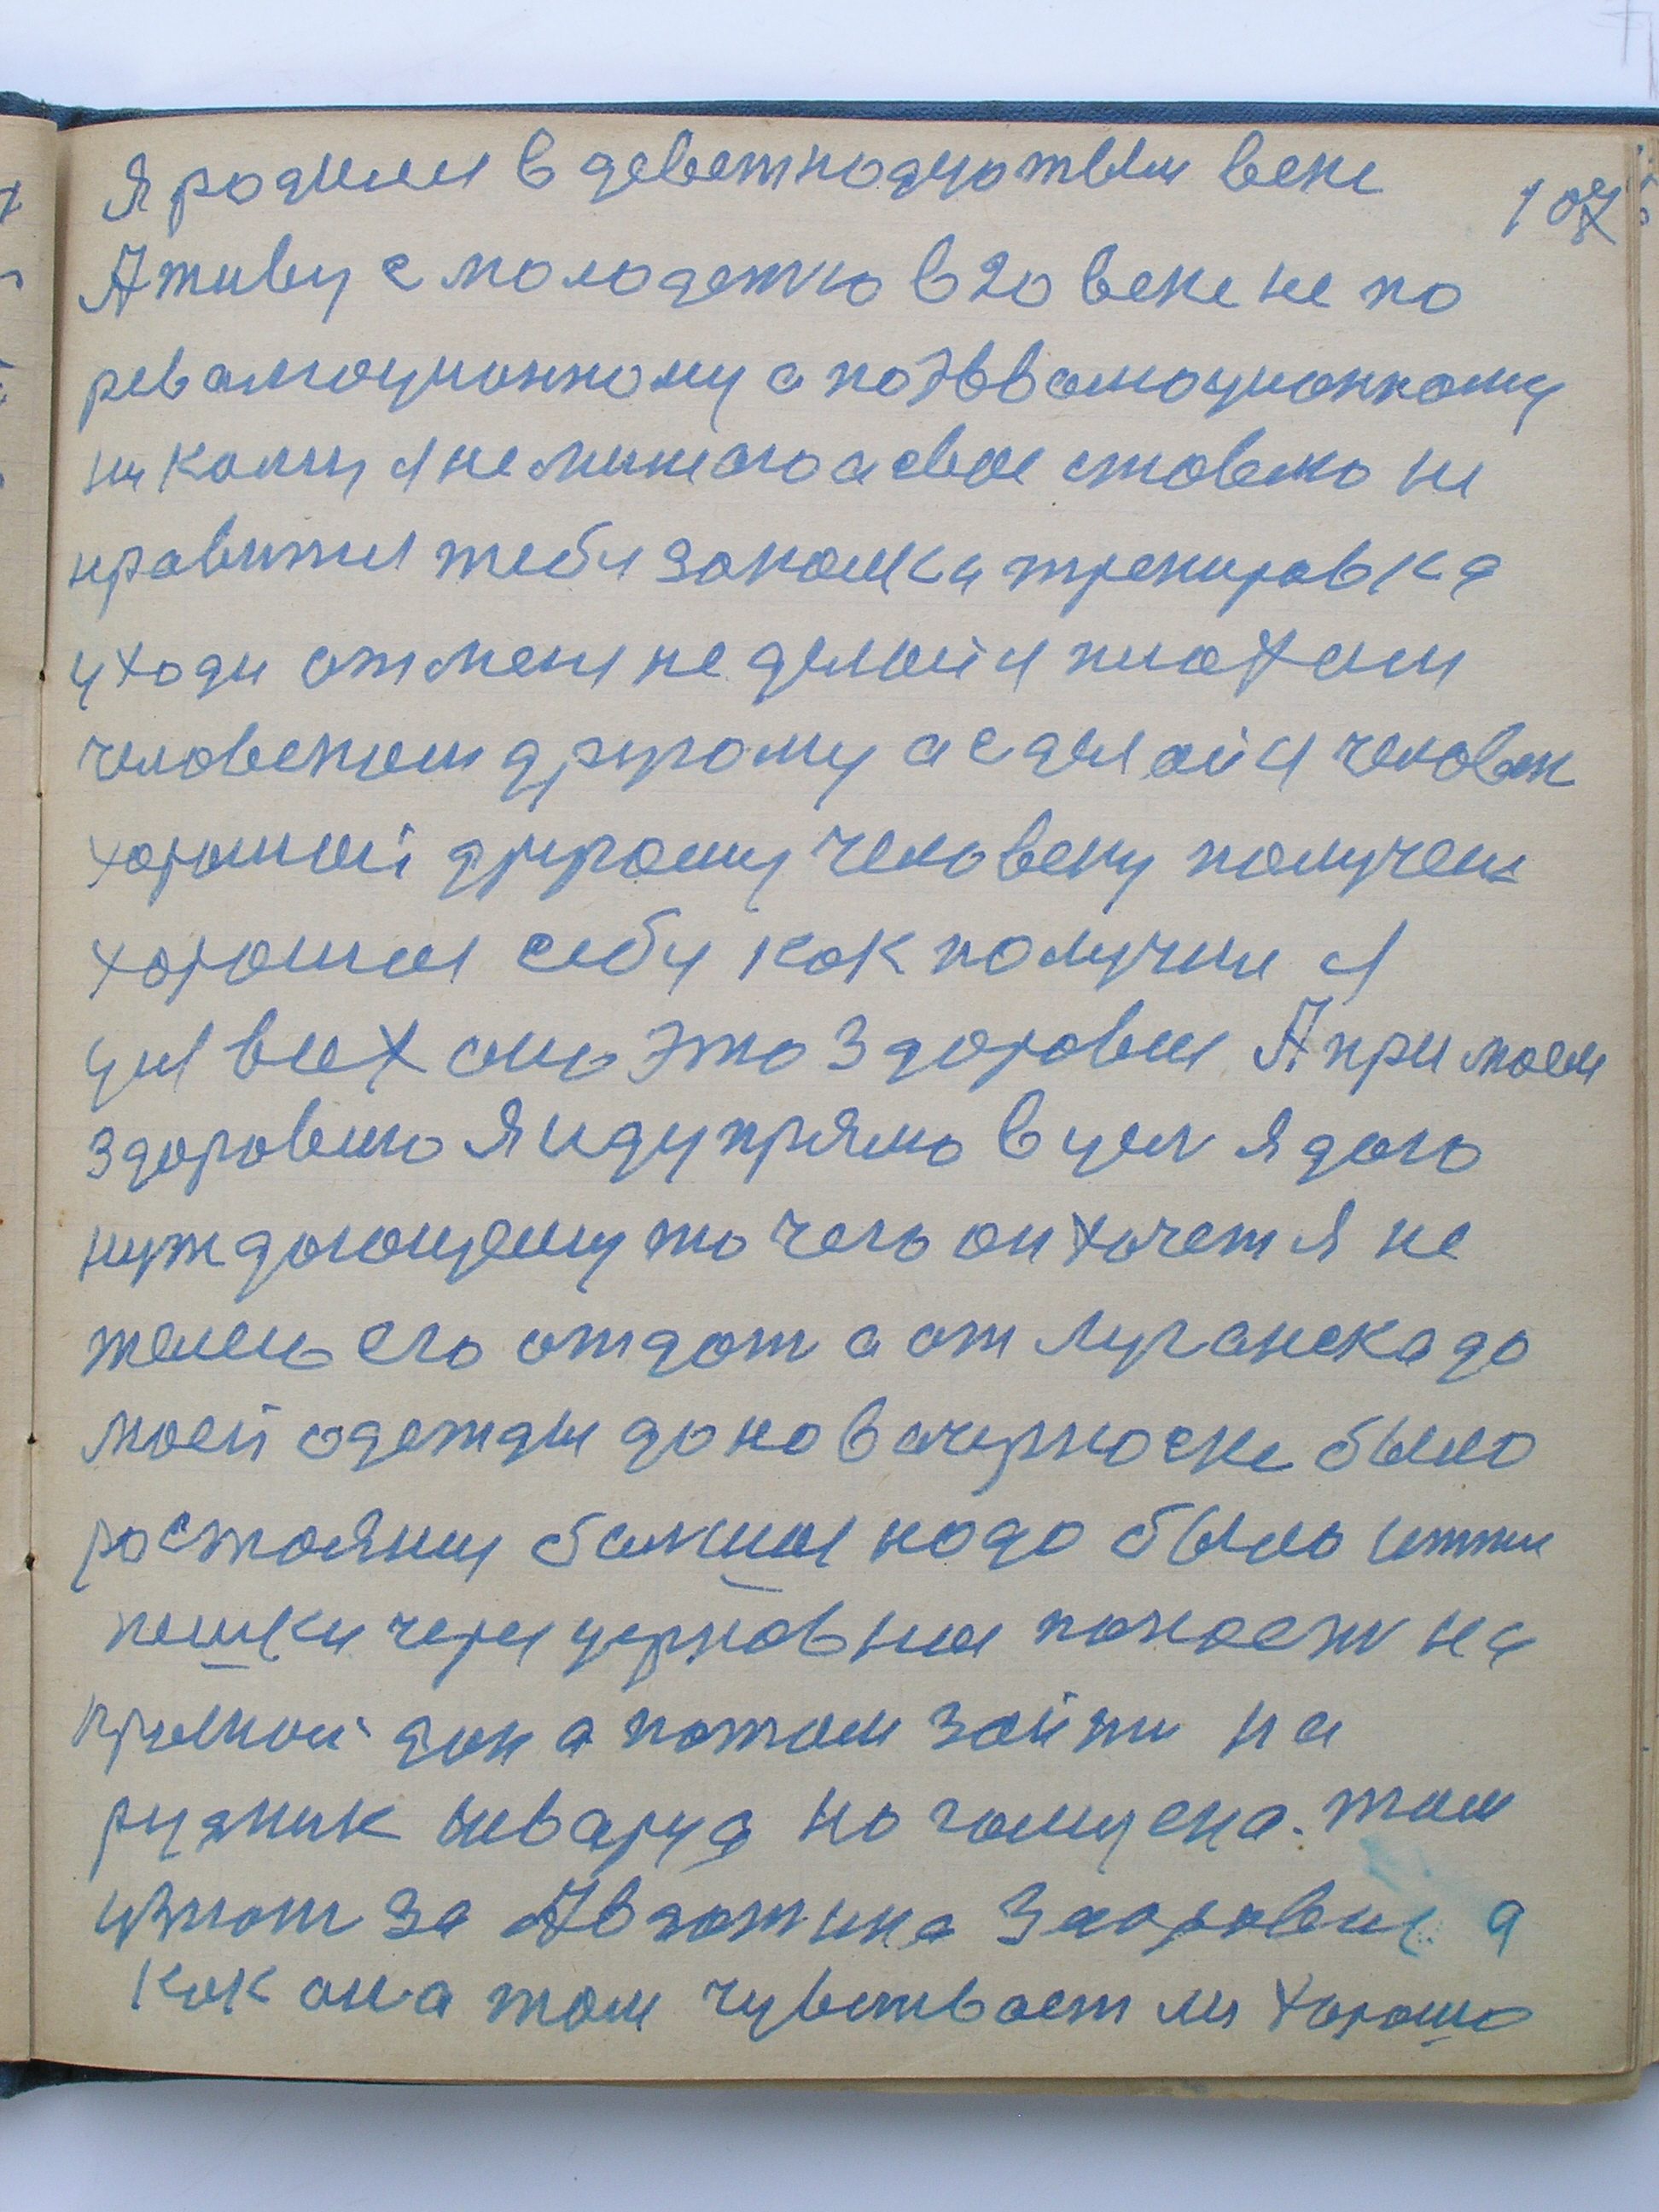 Я родился в деветнодцотым веке
107
А живу с молодежю в 20 веке не по
революционному а по Эвволюционному
ни кому я не мишаю а свое ставлю не
нравития тебя закалка тренировка
уходи от меня не делайся плохам
человеком другому а сделайся человек
хороший другому человеку получеш
хорошея себя как получил я
цея всех ето это Здоровея А при моем
здоровею Я иду прямо в цел я даю
нуждающему то чего он хочет я не
желею его отдат а от Луганска до
моей одежды до новочеркоске было
ростояния болшея нодо было итти
пешки через церковныя поносты на
прямой дон а потом зайти на
рудник шварца но голуска. там
узнат за Авдотина Здоровея а
как она там чувствает ли хорошо